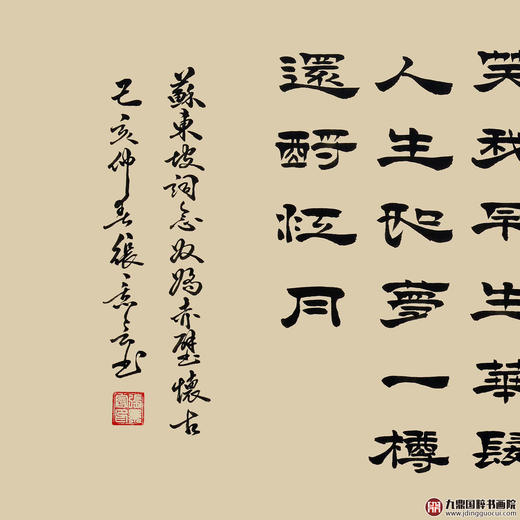 笑我早生華髮
人生如夢一樽
還酹江月
蘇東坡詞念奴嬌赤壁懷古
己亥仲春張意書
九鼎国粹书画院
www.jdingguocui.com